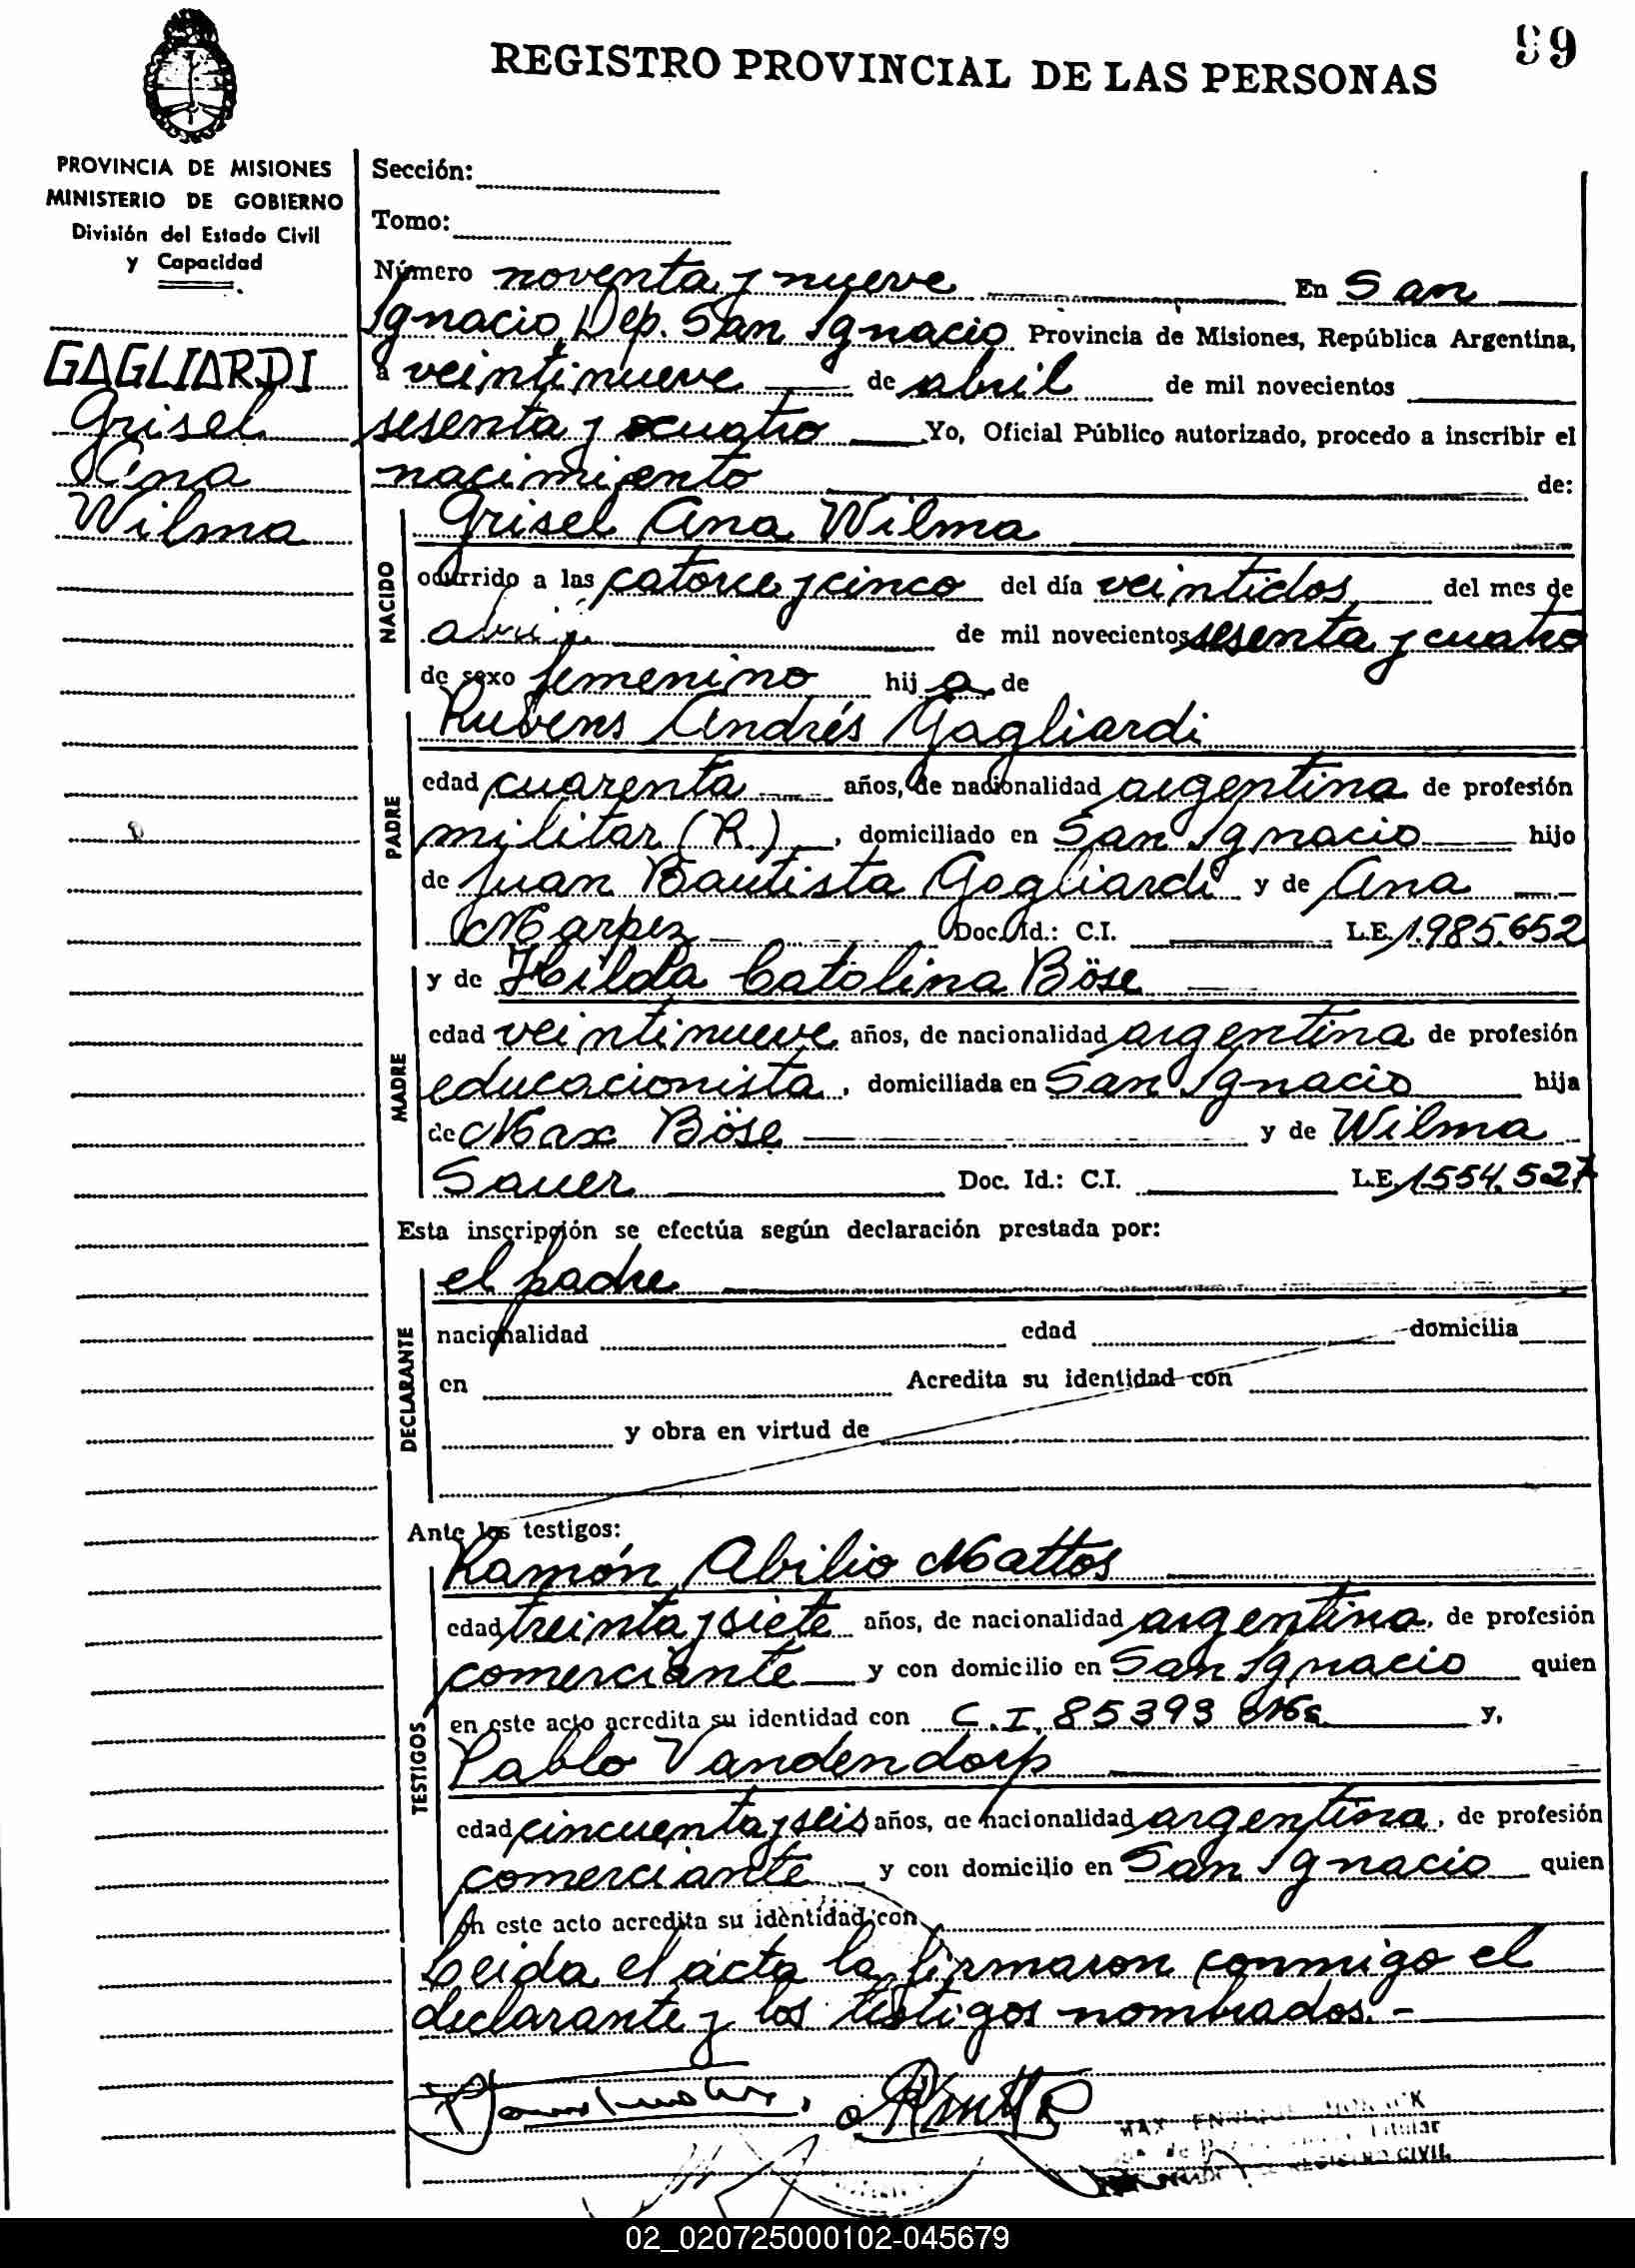 99
REGISTRO PROVINCIAL DE LAS PERSONAS
PROVINCIA DE MISIONES
MINISTERIO DE GOBIERNO
División del Estado Civil
y Capacidad
GAGLIARDI
Grisel
Ana
Wilma
Sección:
Tomo:
Número noventa y nueve En San
Ignacio, Dep. San Ignacio Provincia de Misiones, República Argentina,
a veintinueve de abril de mil novecientos
sesenta y cuatro Yo, Oficial Público autorizado, procedo a inscribir el
nacimiento de:
NACIDO
Grisel Ana Wilma
ocurrido a las catorce y cinco del día veintidos del mes de
abril de mil novecientos sesenta y cuatro
de sexo femenino hij a de
PADRE
Rubens Andrés Gagliardi
edad cuarenta años, de nacionalidad argentina de profesión
militar (R.), domiciliado en San Ignacio hijo
de Juan Bautista Gagliardi y de Ana
Doc. Id.: C.I. L.E. 1.985.652
MADRE
y de Hilda Catalina Böse
edad veintinueve años, de nacionalidad argentina de profesión
educacionista, domiciliada en San Ignacio hija
de Max Böse y de Wilma
Sauer Doc. Id.: C.I. L.E. 1554.527
Esta inscripción se efectúa según declaración prestada por:
DECLARANTE
el padre
nacionalidad edad domicilia
en Acredita su identidad con
y obra en virtud de
Ante los testigos:
TESTIGOS
Ramón Abilio Mattos
edad treinta y siete años, de nacionalidad argentina, de profesión
comerciante y con domicilio en San Ignacio quien
en este acto acredita su identidad con C.I. 85393 Ms. y,
Pablo Vandendorp
edad cincuenta y seis años, de nacionalidad argentina, de profesión
comerciante y con domicilio en San Ignacio quien
en este acto acredita su identidad con
Leída el acta la firmaron conmigo el
declarante y los testigos nombrados.-
MAX ENRIQUE
Titular
REGISTRO CIVIL
02_020725000102-045679